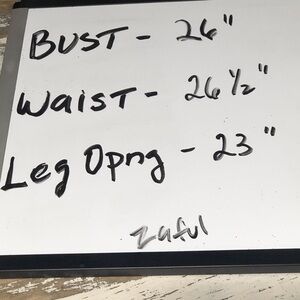 BUST - 26"
WAIST - 26 1/2"
Leg Opng - 23"
Zaful